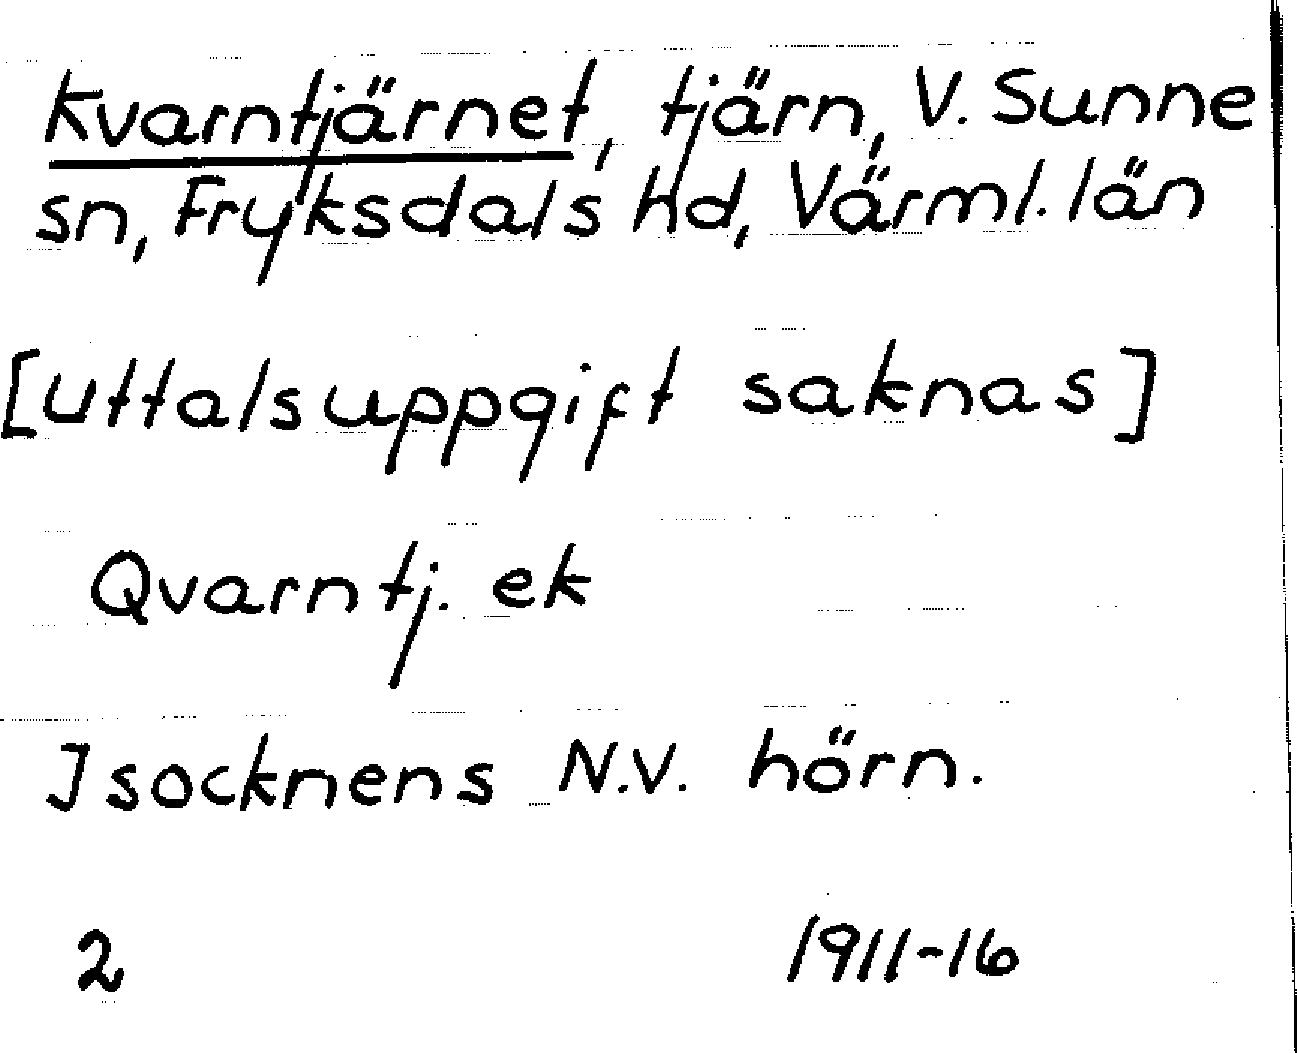 Kvarntjärnet, tjärn, V. Sunne
sn, Fryksdals hd, Värml. län
[Uttalsuppgift saknas]
Qvarntj. ek
I socknens N.V. hörn.
2 1911-16